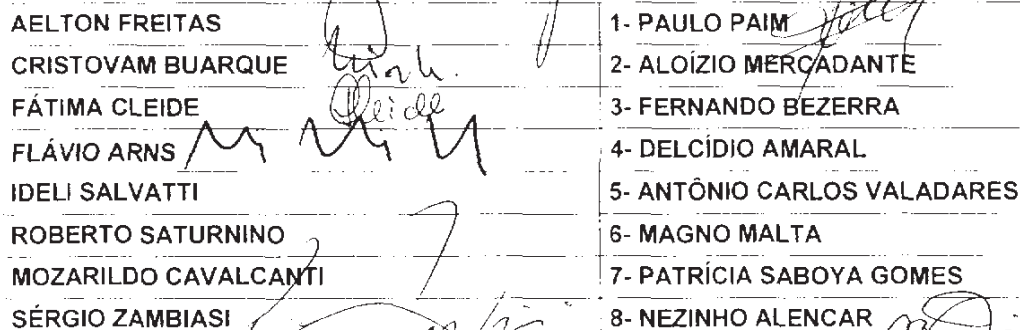 AELTON FREITAS
1- PAULO PAIM
CRISTOVAM BUARQUE
2- ALOÍZIO MERCADANTE
FÁTIMA CLEIDE Cleide
3- FERNANDO BEZERRA
FLÁVIO ARNS
4- DELCÍDIO AMARAL
IDELI SALVATTI
5- ANTÔNIO CARLOS VALADARES
ROBERTO SATURNINO
6- MAGNO MALTA
MOZARILDO CAVALCANTI
7- PATRÍCIA SABOYA GOMES
SÉRGIO ZAMBIASI
8- NEZINHO ALENCAR